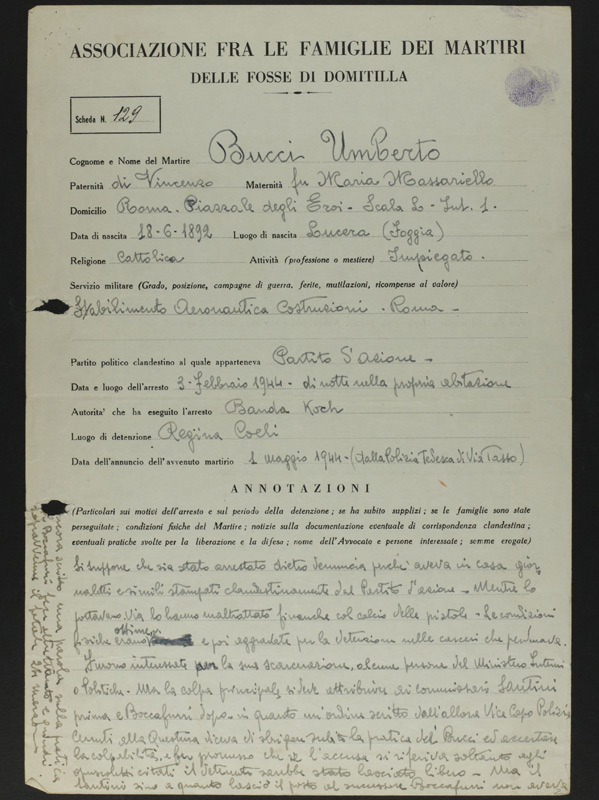 ASSOCIAZIONE FRA LE FAMIGLIE DEI MARTIRI
DELLE FOSSE DI DOMITILLA
Scheda N. 129
Cognome e Nome del Martire Bucci Umberto
Paternità di Vincenzo Maternità fu Maria Massariello
Domicilio Roma. Piazzale degli Eroi - Scala L - Int. 1.
Data di nascita 18-6-1892 Luogo di nascita Lucera (Foggia)
Religione Cattolica Attività (professione o mestiere) Impiegato.
Servizio militare (Grado, posizione, campagne di guerra, ferite, mutilazioni, ricompense al valore)
Stabilimento Aeronautica Costruzioni - Roma -
Partito politico clandestino al quale apparteneva Partito d'Azione -
Data e luogo dell'arresto 3-Febbraio 1944 - di notte nella propria abitazione
Autorita' che ha eseguito l'arresto Banda Koch
Luogo di detenzione Regina Coeli
Data dell'annuncio dell'avvenuto martirio 1 maggio 1944 - (dalla Polizia Tedesca di Via Tasso)
ANNOTAZIONI
(Particolari sui motivi dell'arresto e sul periodo della detenzione; se ha subito supplizi; se le famiglie sono state
perseguitate; condizioni fisiche del Martire; notizie sulla documentazione eventuale di corrispondenza clandestina;
eventuali pratiche svolte per la liberazione e la difesa; nome dell'Avvocato e persone interessate; semme erogate)
Si suppone che sia stato arrestato dietro denuncia perché aveva in casa gior
naletti e simili stampati clandestinamente dal Partito d'azione - Mentre lo
portavano via lo hanno maltrattato finanche col calcio delle pistole - Le condizioni
fisiche erano ottime e poi aggravate per la detenzione nelle carceri che
Si sono interessate per la sua scarcerazione, alcune persone del Ministero Interni
e Politiche - Ma la colpa principale, si deve attribuire ai commissari Santini
prima e Boccafurri dopo - in quanto un'ordine scritto dall'allora Vice Capo Polizia
Cerruti alla Questura diceva di sbrigare subito la pratica del Bucci ed accertare
la colpabilità, e fu promesso che se l'accusa si riferiva soltanto agli
opuscoletti citati il detenuto sarebbe stato lasciato libero - Ma il
Santini sino a quando lasciò il posto al successore Boccafurri non aveva
ancora scritto una parola sulla pratica